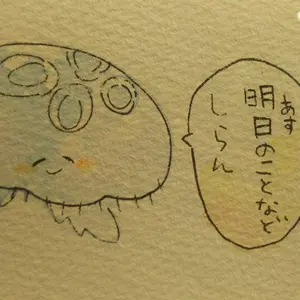 明日のことなど
あす
しらん